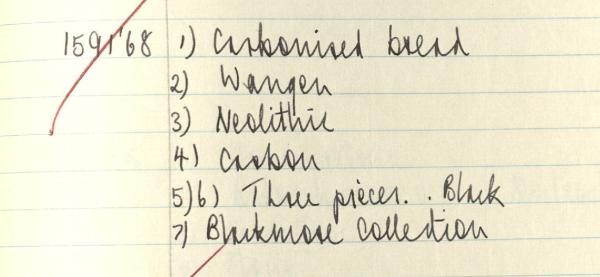 1591'68 1) Carbonised bread
2) Wangen
3) Neolithic
4) Carbon
5)6) Three pieces. . Black
7) Blackmore Collection